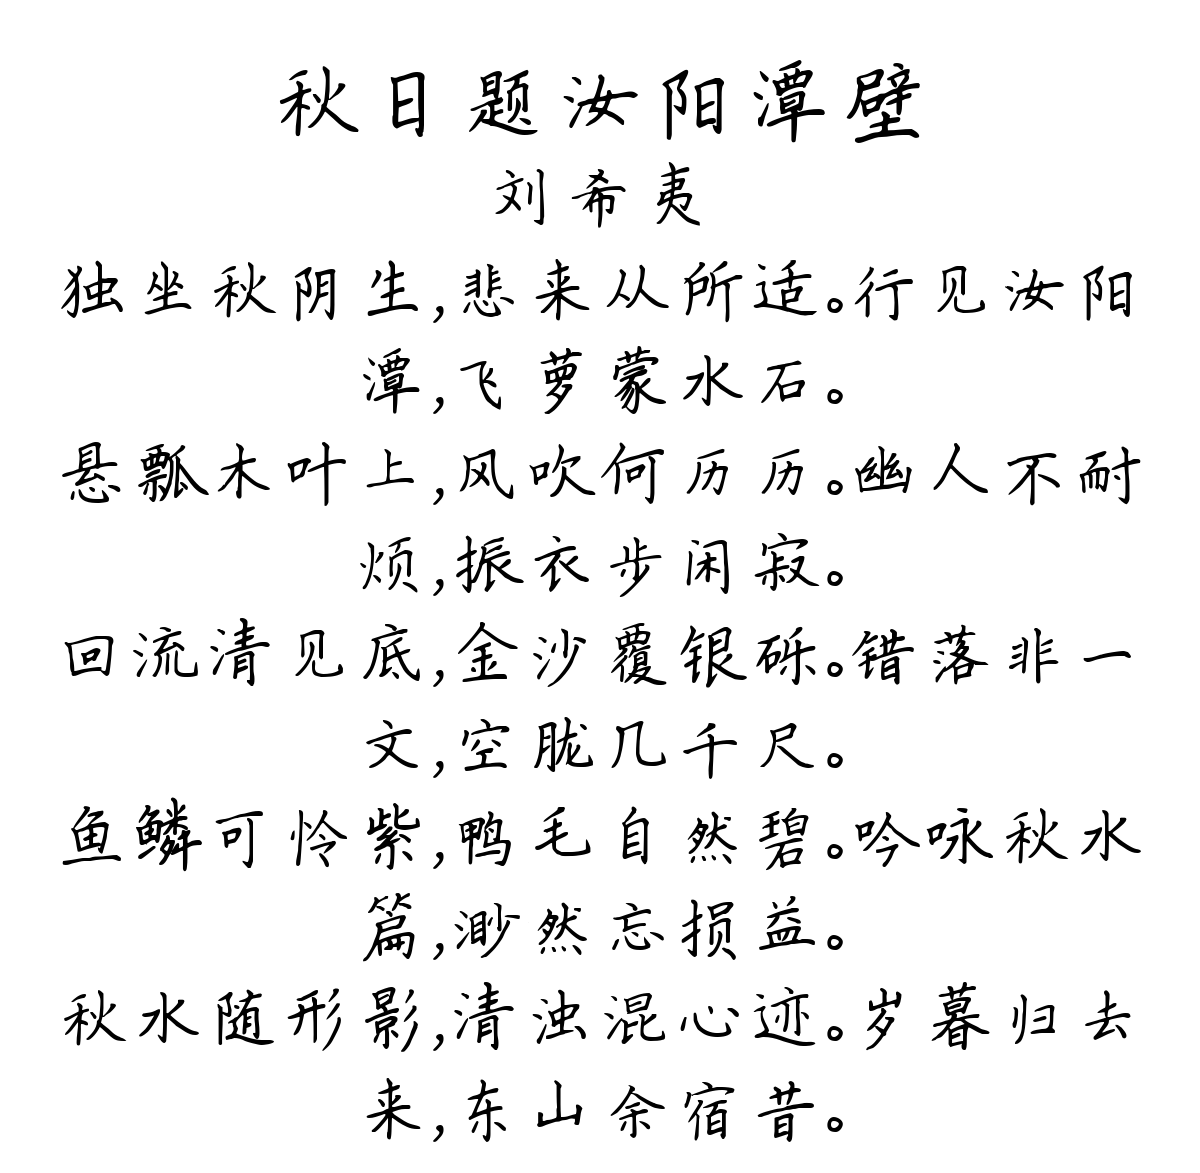 秋日题汝阳潭壁
刘希夷
独坐秋阴生,悲来从所适。行见汝阳
潭,飞萝蒙水石。
悬瓢木叶上,风吹何历历。幽人不耐
烦,振衣步闲寂。
回流清见底,金沙覆银砾。错落非一
文,空胧几千尺。
鱼鳞可怜紫,鸭毛自然碧。吟咏秋水
篇,渺然忘损益。
秋水随形影,清浊混心迹。岁暮归去
来,东山余宿昔。